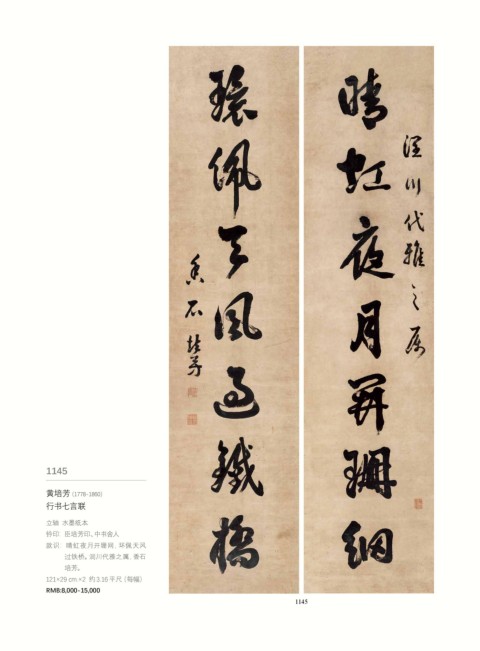 晴虹夜月開珊網
川代雅之属
環佩天風過鐵橋
香石培芳
1145
黄培芳 (1778-1860)
行书七言联
立轴 水墨纸本
钤印：臣培芳印、中书舍人
款识：晴虹夜月开珊网，环佩天风
过铁桥。润川代雅之属，香石
培芳。
121×29 cm ×2 约 3.16 平尺（每幅）
RMB:8,000-15,000
1145